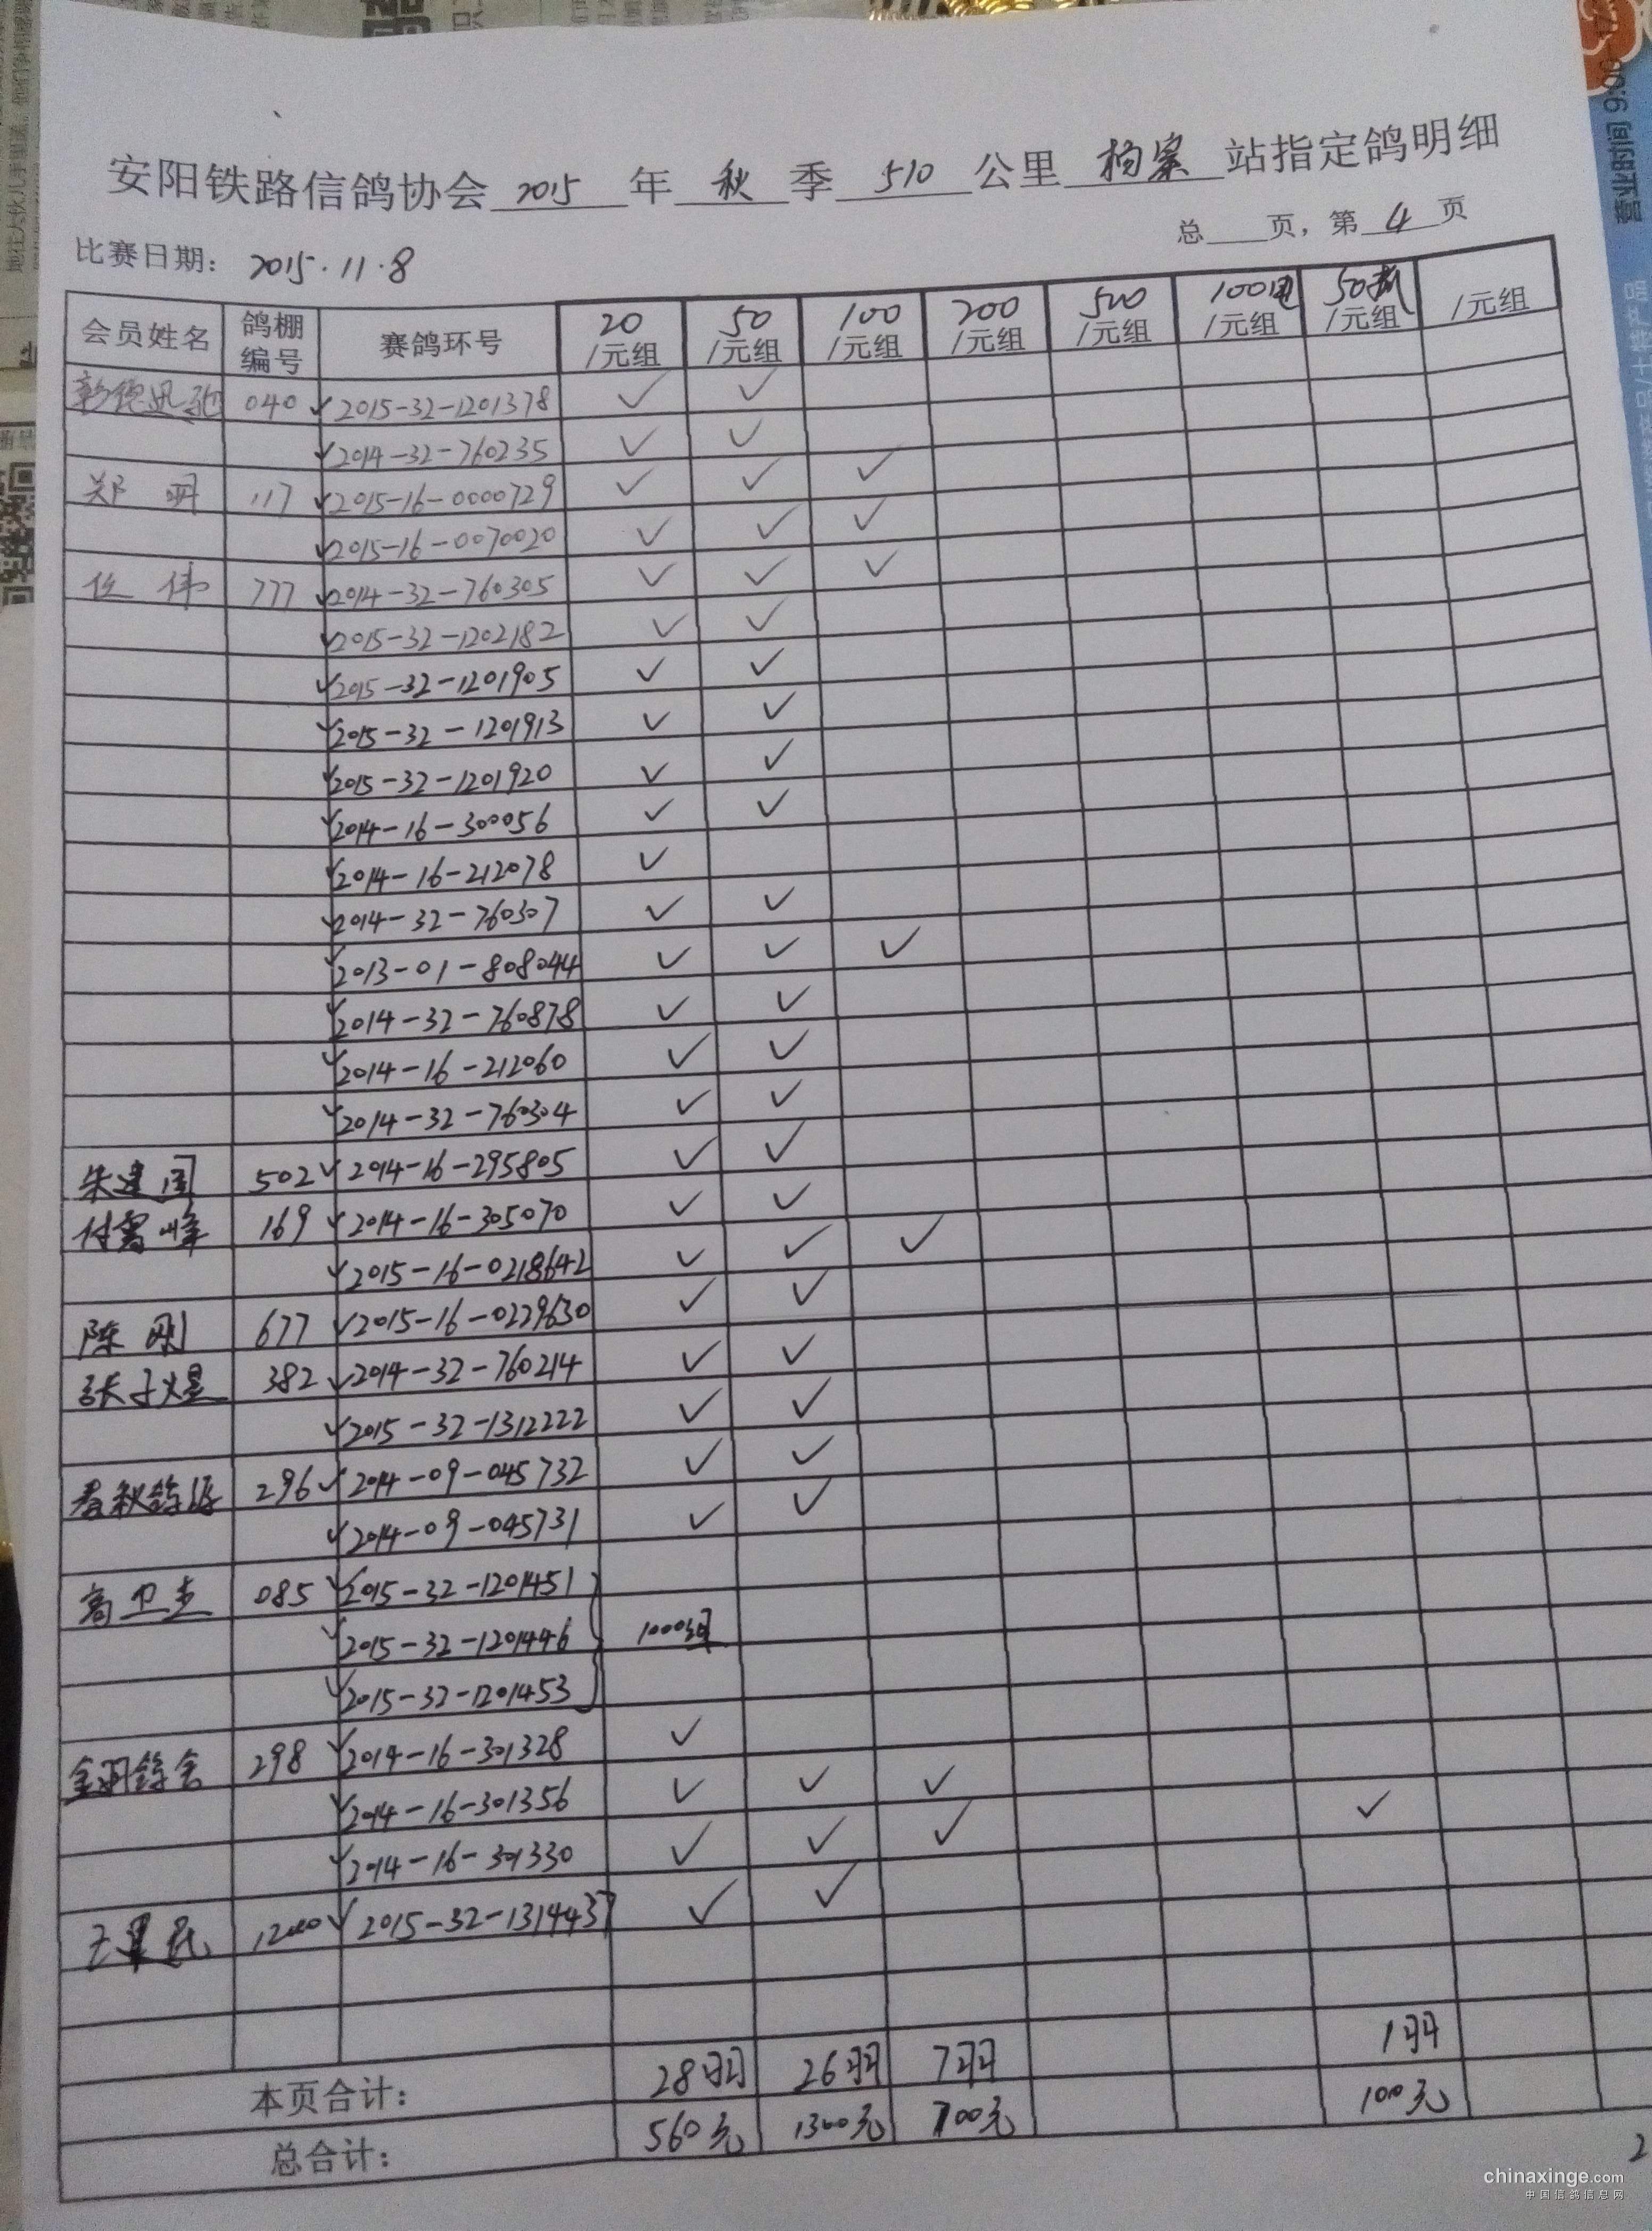 安阳铁路信鸽协会 2015 年 秋 季 510 公里 站指定鸽明细
总 页，第 4 页
比赛日期： 2015.11.8
会员姓名 鸽棚编号 赛鸽环号 20/元组 50/元组 100/元组 200/元组 500/元组 100 /元组 50 /元组 /元组
彰德迅驰 040 ✓ 2015-32-1201378 ✓ ✓
✓ 2014-32-760235 ✓ ✓
郑 明 117 ✓ 2015-16-0000729 ✓ ✓ ✓
✓ 2015-16-0070020 ✓ ✓ ✓
任 伟 777 ✓ 2014-32-760305 ✓ ✓ ✓
✓ 2015-32-1202182 ✓ ✓
✓ 2015-32-1201905 ✓ ✓
✓ 2015-32-1201913 ✓ ✓
✓ 2015-32-1201920 ✓ ✓
✓ 2014-16-300056 ✓ ✓
✓ 2014-16-212078 ✓
✓ 2014-32-760307 ✓ ✓
✓ 2013-01-808044 ✓ ✓ ✓
✓ 2014-32-760878 ✓ ✓
✓ 2014-16-212060 ✓ ✓
✓ 2014-32-760304 ✓ ✓
朱建国 502 ✓ 2014-16-295805 ✓ ✓
付雪峰 169 ✓ 2014-16-305070 ✓ ✓
✓ 2015-16-0218642 ✓ ✓ ✓
陈 刚 677 ✓ 2015-16-0229630 ✓ ✓
张子煜 382 ✓ 2014-32-760214 ✓ ✓
✓ 2015-32-1312222 ✓ ✓
春秋鸽 296 ✓ 2014-09-045732 ✓ ✓
✓ 2014-09-045731 ✓ ✓
高卫 085 ✓ 2015-32-1201451
✓ 2015-32-1201446 1000组
✓ 2015-32-1201453
金羽鸽舍 298 ✓ 2014-16-301328 ✓
✓ 2014-16-301356 ✓ ✓ ✓ ✓
✓ 2014-16-301330 ✓ ✓ ✓
✓ 2015-32-1314437 ✓ ✓
本页合计： 28羽 26羽 7羽 1羽
总合计： 560元 1300元 700元 100元
2
chinaxinge.com
中国信鸽信息网
营业时间 9:00